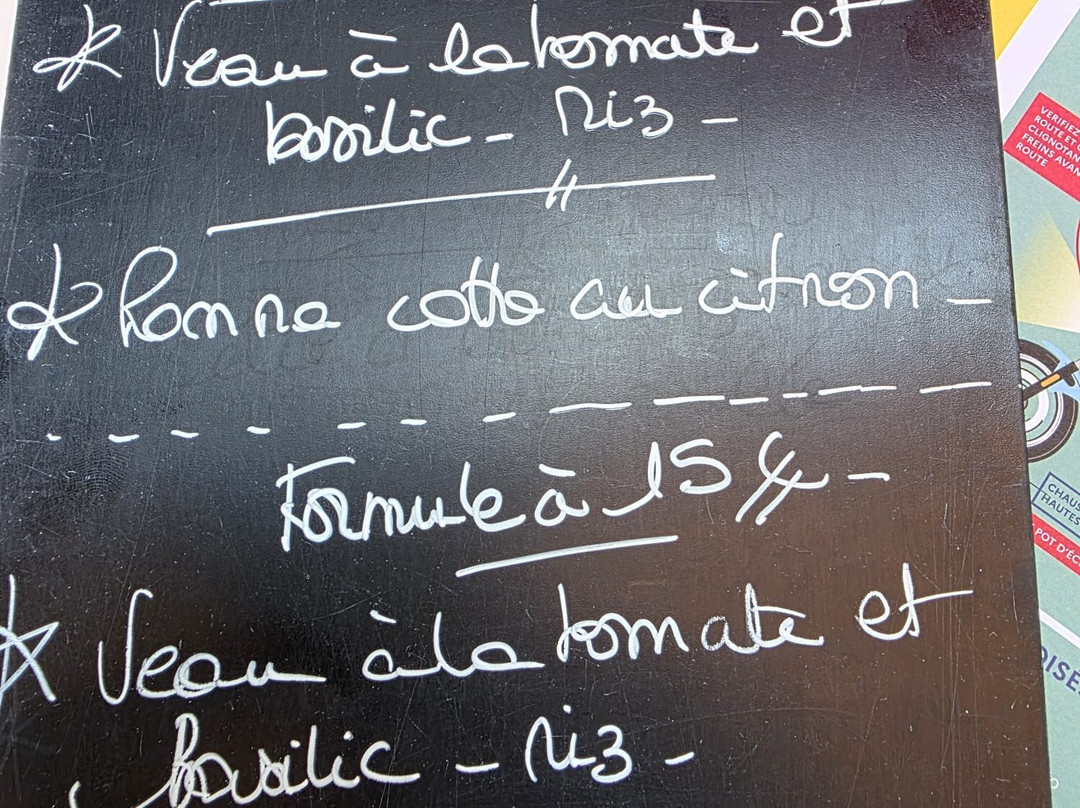 * Veau à la tomate et
basilic - Riz -
* Panna cotta au citron -
Formule à 15 € -
* Veau à la tomate et
basilic - Riz -
VERIFIEZ
ROUTE ET
CLIGNOTAN
FREINS AVAN
ROUTE
CHAUS
HAUTES
POT D'ÉC
OISE